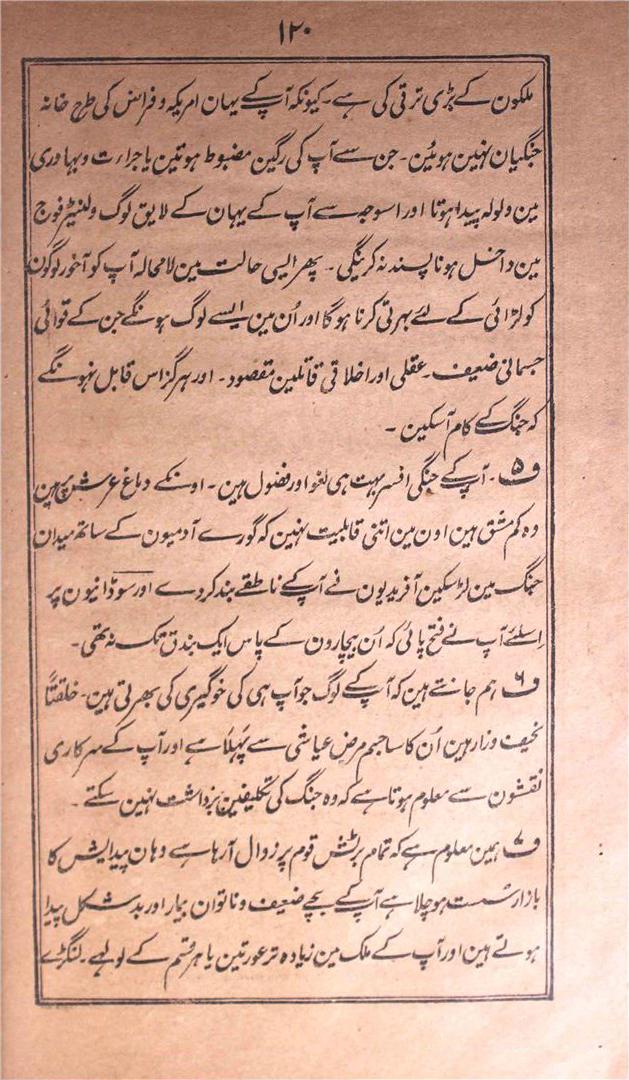 ۱۲۰
ملکون کے بڑی ترقی کی ہے۔ کیونکہ آپ کے یہان امریکہ و فرانس کی طرح خانہ
جنگیان نہین ہوئین۔ جن سے آپ کی رگین مضبوط ہوتین یا جراءت و بہادری
مین ولولہ پیدا ہوتا اور اسوجہ سے آپ کے یہان کے لایق لوگ ولنٹیر فوج
مین داخل ہونا پسند نہ کرینگی۔ پھر ایسی حالت مین لامحالہ آپ کو آخور لوگون
کو لڑائی کے لئے بہرتی کرنا ہوگا اور اُن مین ایسے لوگ ہونگے جن کے قوائی
جسمانی ضعیف۔ عقلی اور اخلاقی قاتلین مقصود۔ اور ہرگز اس قابل نہونگے
کہ جنگ کے کام آسکین۔
ف۵۔ آپ کے جنگی افسر بہت ہی لغو اور فضول ہین۔ اونکے دماغ عرش پر ہین
وہ کم مشق ہین اون مین اتنی قابلیت نہین کہ گورے آدمیون کے ساتھ میدان
جنگ مین لڑسکین آفریدیون نے آپ کے ناطقے بند کردے اور سوڈانیون پر
اِسلئے آپ نے فتح پائی کہ اُن بیچارون کے پاس ایک بندق تک نہ تھی۔
ف۶ ہم جانتے ہین کہ آپ کے لوگ جو آپ ہی کی خوگیری کی بھرتی ہین۔ خلقتاً
نحیف و زار ہین اُن کا سا جسم مرض عیاشی سے پہلا ہے اور آپ کے سرکاری
نقشون سے معلوم ہوتا ہے کہ وہ جنگ کی تکلیفین برداشت نہین سکتے۔
ف۷ ہمین معلوم ہے کہ تمام برٹش قوم پر زوال آرہا ہے وہان پیدایش کا
بازار سُست ہوچلا ہے آپ کے بچے ضعیف و ناتوان بیمار اور بدشکل پیدا
ہوتے ہین اور آپ کے ملک مین زیادہ تر عورتین یا ہر قسم کے لولہے۔ لنگڑے